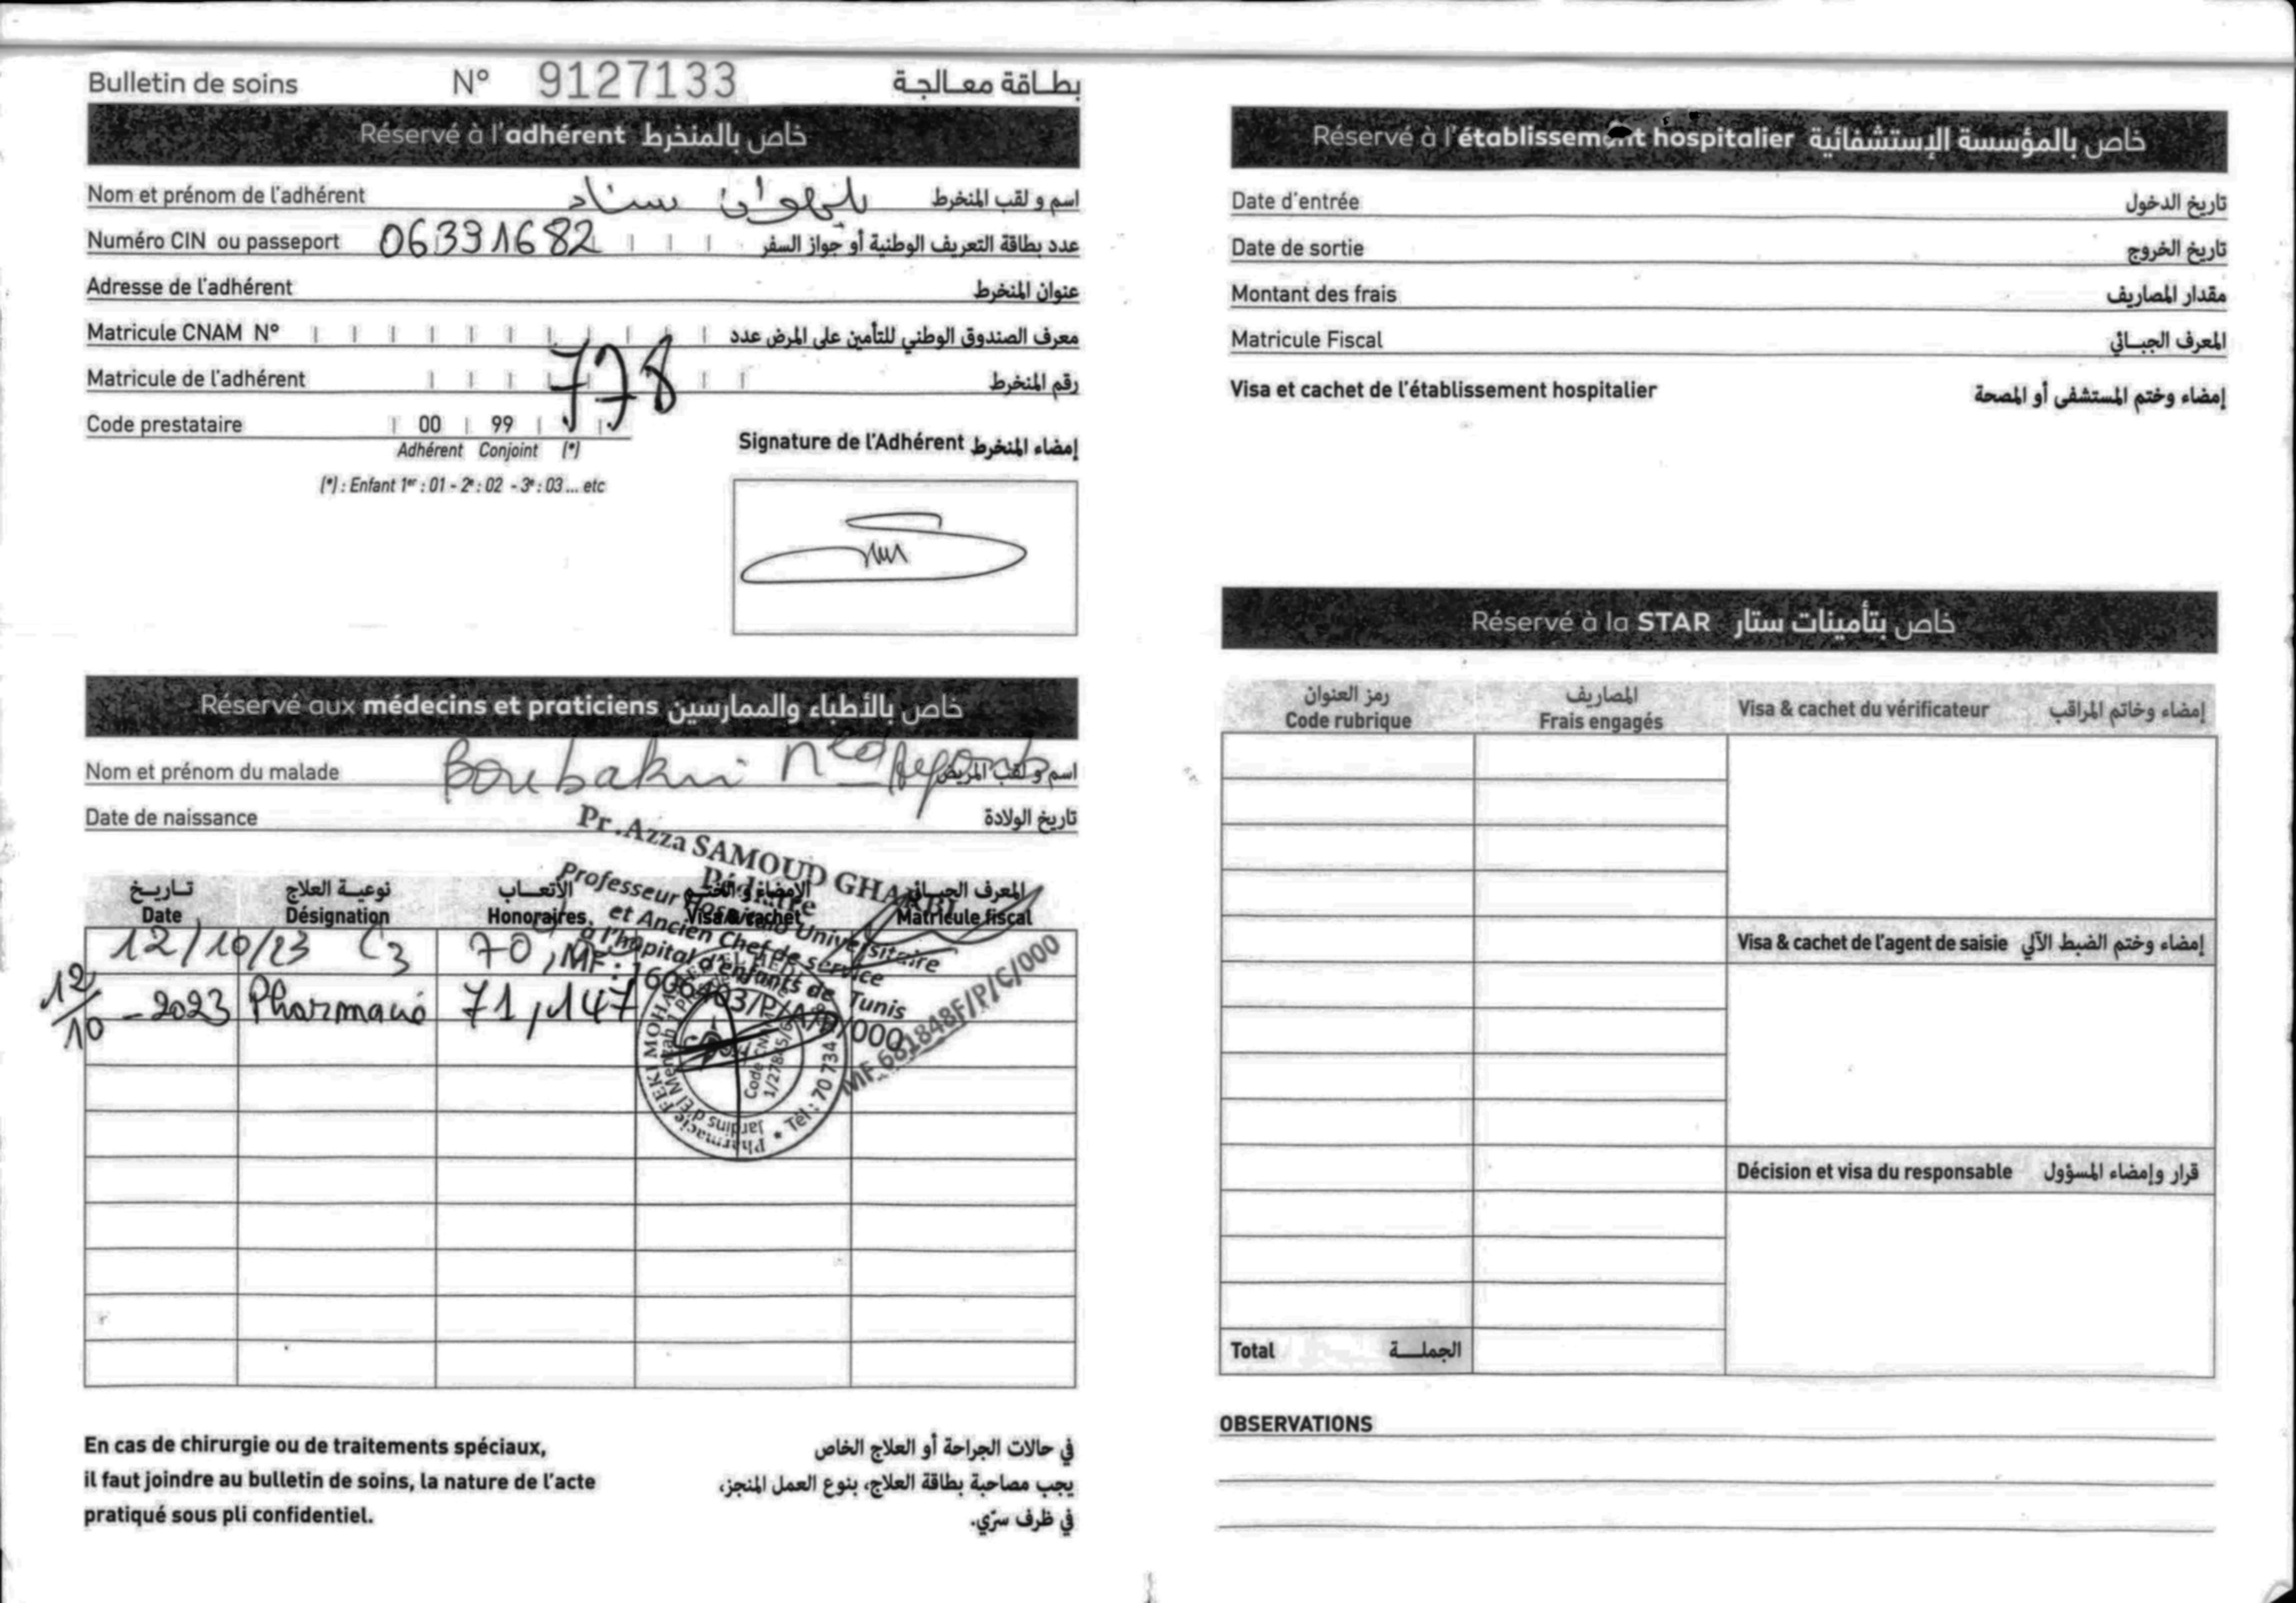 Bulletin de soins N° 9127133 بطاقة معالجة
Réservé à l'adhérent خاص بالمنخرط
Nom et prénom de l'adhérent سناد اسم و لقب المنخرط
Numéro CIN ou passeport 06391682 عدد بطاقة التعريف الوطنية أو جواز السفر
Adresse de l'adhérent عنوان المنخرط
Matricule CNAM N° معرف الصندوق الوطني للتأمين على المرض عدد
Matricule de l'adhérent 778 رقم المنخرط
Code prestataire 00 99
Adhérent Conjoint (*)
(*) : Enfant 1er : 01 - 2e : 02 - 3e : 03 ... etc
Signature de l'Adhérent إمضاء المنخرط
Réservé aux médecins et praticiens خاص بالأطباء والممارسين
Nom et prénom du malade Boubakri اسم و لقب المريض
Date de naissance تاريخ الولادة
Pr. Azza SAMOUD GHARBI
Pédiatre
Professeur Hospitalo Universitaire
et Ancien Chef de service
à l'hôpital d'enfants de Tunis
MF: 1606403/P/A/P/000
تـاريـخ نوعيـة العلاج الأتعـاب الإمضاء و الختـم المعرف الجبـائي
Date Désignation Honoraires Visa & cachet Matricule fiscal
12/10/23 C3 70,
12/10-2023 Pharmacie 71,147
MF 681848F/P/C/000
Pharmacie FEKI MOHAMED
Jardins d'El Menzah
Tél : 70 734
En cas de chirurgie ou de traitements spéciaux,
il faut joindre au bulletin de soins, la nature de l'acte
pratiqué sous pli confidentiel.
في حالات الجراحة أو العلاج الخاص
يجب مصاحبة بطاقة العلاج، بنوع العمل المنجز،
في ظرف سرّي.
Réservé à l'établissement hospitalier خاص بالمؤسسة الإستشفائية
Date d'entrée تاريخ الدخول
Date de sortie تاريخ الخروج
Montant des frais مقدار المصاريف
Matricule Fiscal المعرف الجبـائي
Visa et cachet de l'établissement hospitalier إمضاء وختم المستشفى أو المصحة
Réservé à la STAR خاص بتأمينات ستار
رمز العنوان المصاريف
Code rubrique Frais engagés Visa & cachet du vérificateur إمضاء وخاتم المراقب
Visa & cachet de l'agent de saisie إمضاء وختم الضبط الآلي
Décision et visa du responsable قرار وإمضاء المسؤول
Total الجملـــة
OBSERVATIONS